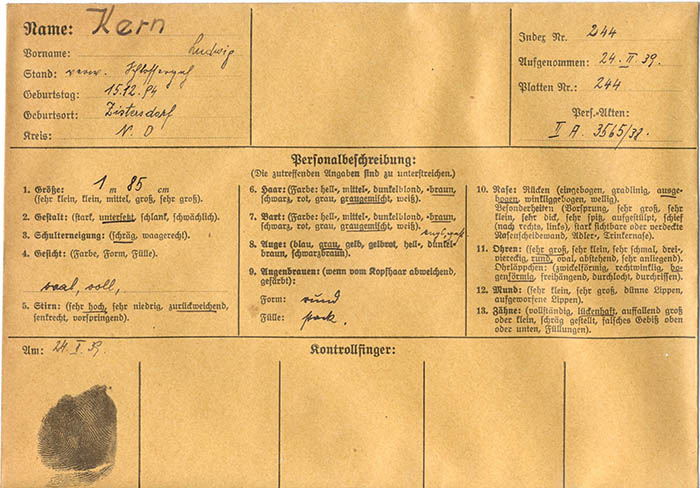 Name: Kern
Vorname: Ludwig
Stand: verw. Schlossergeh
Geburtstag: 15.12.94
Geburtsort: Zistersdorf
Kreis: N. D
Index Nr. 244
Aufgenommen: 24. II. 39.
Platten Nr.: 244
Pers.-Akten:
II A. 3565/38.
Personalbeschreibung:
(Die zutreffenden Angaben sind zu unterstreichen.)
1. Größe: 1 m 85 cm
(sehr klein, klein, mittel, groß, sehr groß).
2. Gestalt: (stark, untersetzt, schlank, schwächlich).
3. Schulterneigung: (schräg, waagerecht).
4. Gesicht: (Farbe, Form, Fülle).
oval, voll,
5. Stirn: (sehr hoch, sehr niedrig, zurückweichend,
senkrecht, vorspringend).
6. Haar: (Farbe: hell-, mittel-, dunkelblond, -braun,
schwarz, rot, grau, graugemischt, weiß).
7. Bart: (Farbe: hell-, mittel-, dunkelblond, -braun,
schwarz, rot, grau, graugemischt, weiß).
8. Auge: (blau, grau, gelb, gelbrot, hell-, dunkel-
braun, schwarzbraun).
9. Augenbrauen: (wenn vom Kopfhaar abweichend,
gefärbt):
Form: rund
Fülle:
10. Nase: Rücken (eingebogen, gradlinig, ausge-
bogen, winkliggebogen, wellig).
Besonderheiten (Vorsprung, sehr groß, sehr
klein, sehr dick, sehr spitz, aufgestülpt, schief
(nach rechts, links), stark sichtbare oder verdeckte
Nasenscheidewand, Adler-, Trinkernase).
11. Ohren: (sehr groß, sehr klein, sehr schmal, drei-,
viereckig, rund, oval, abstehend, sehr anliegend).
Ohrläppchen: (zwickelförmig, rechtwinklig, bo-
genförmig, freihängend, durchlocht, durchrissen).
12. Mund: (sehr klein, sehr groß, dünne Lippen,
aufgeworfene Lippen).
13. Zähne: (vollständig, lückenhaft, auffallend groß
oder klein, schräg gestellt, falsches Gebiß oben
oder unten, Füllungen).
Am: 24. II. 39.
Kontrollfinger: